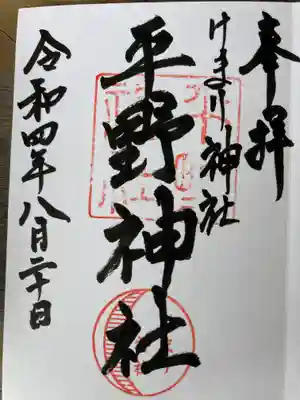 奉拝
けまり神社
平野神社
令和四年八月二十日